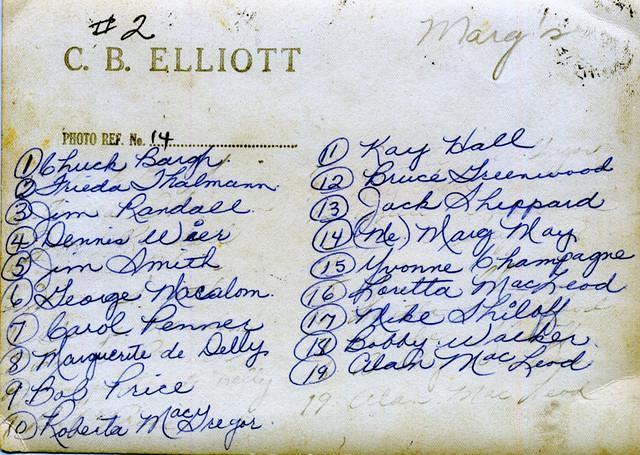 #2
Marg's
C. B. ELLIOTT
PHOTO REF. No. 14
1 Chuck Bargh
2 Frieda Thalmann
3 Jim Randall
4 Dennis Wier
5 Jim Smith
6 George Macalom
7 Carol Penner
8 Marguerite de Delly
9 Bob Price
10 Roberta MacGregor
11 Kay Hall
12 Bruce Greenwood
13 Jack Sheppard
14 (Me) Marg May
15 Yvonne Champagne
16 Loretta MacLeod
17 Mike Shiloff
18 Bobby Walker
19 Alan MacLeod
19. Alan MacLeod